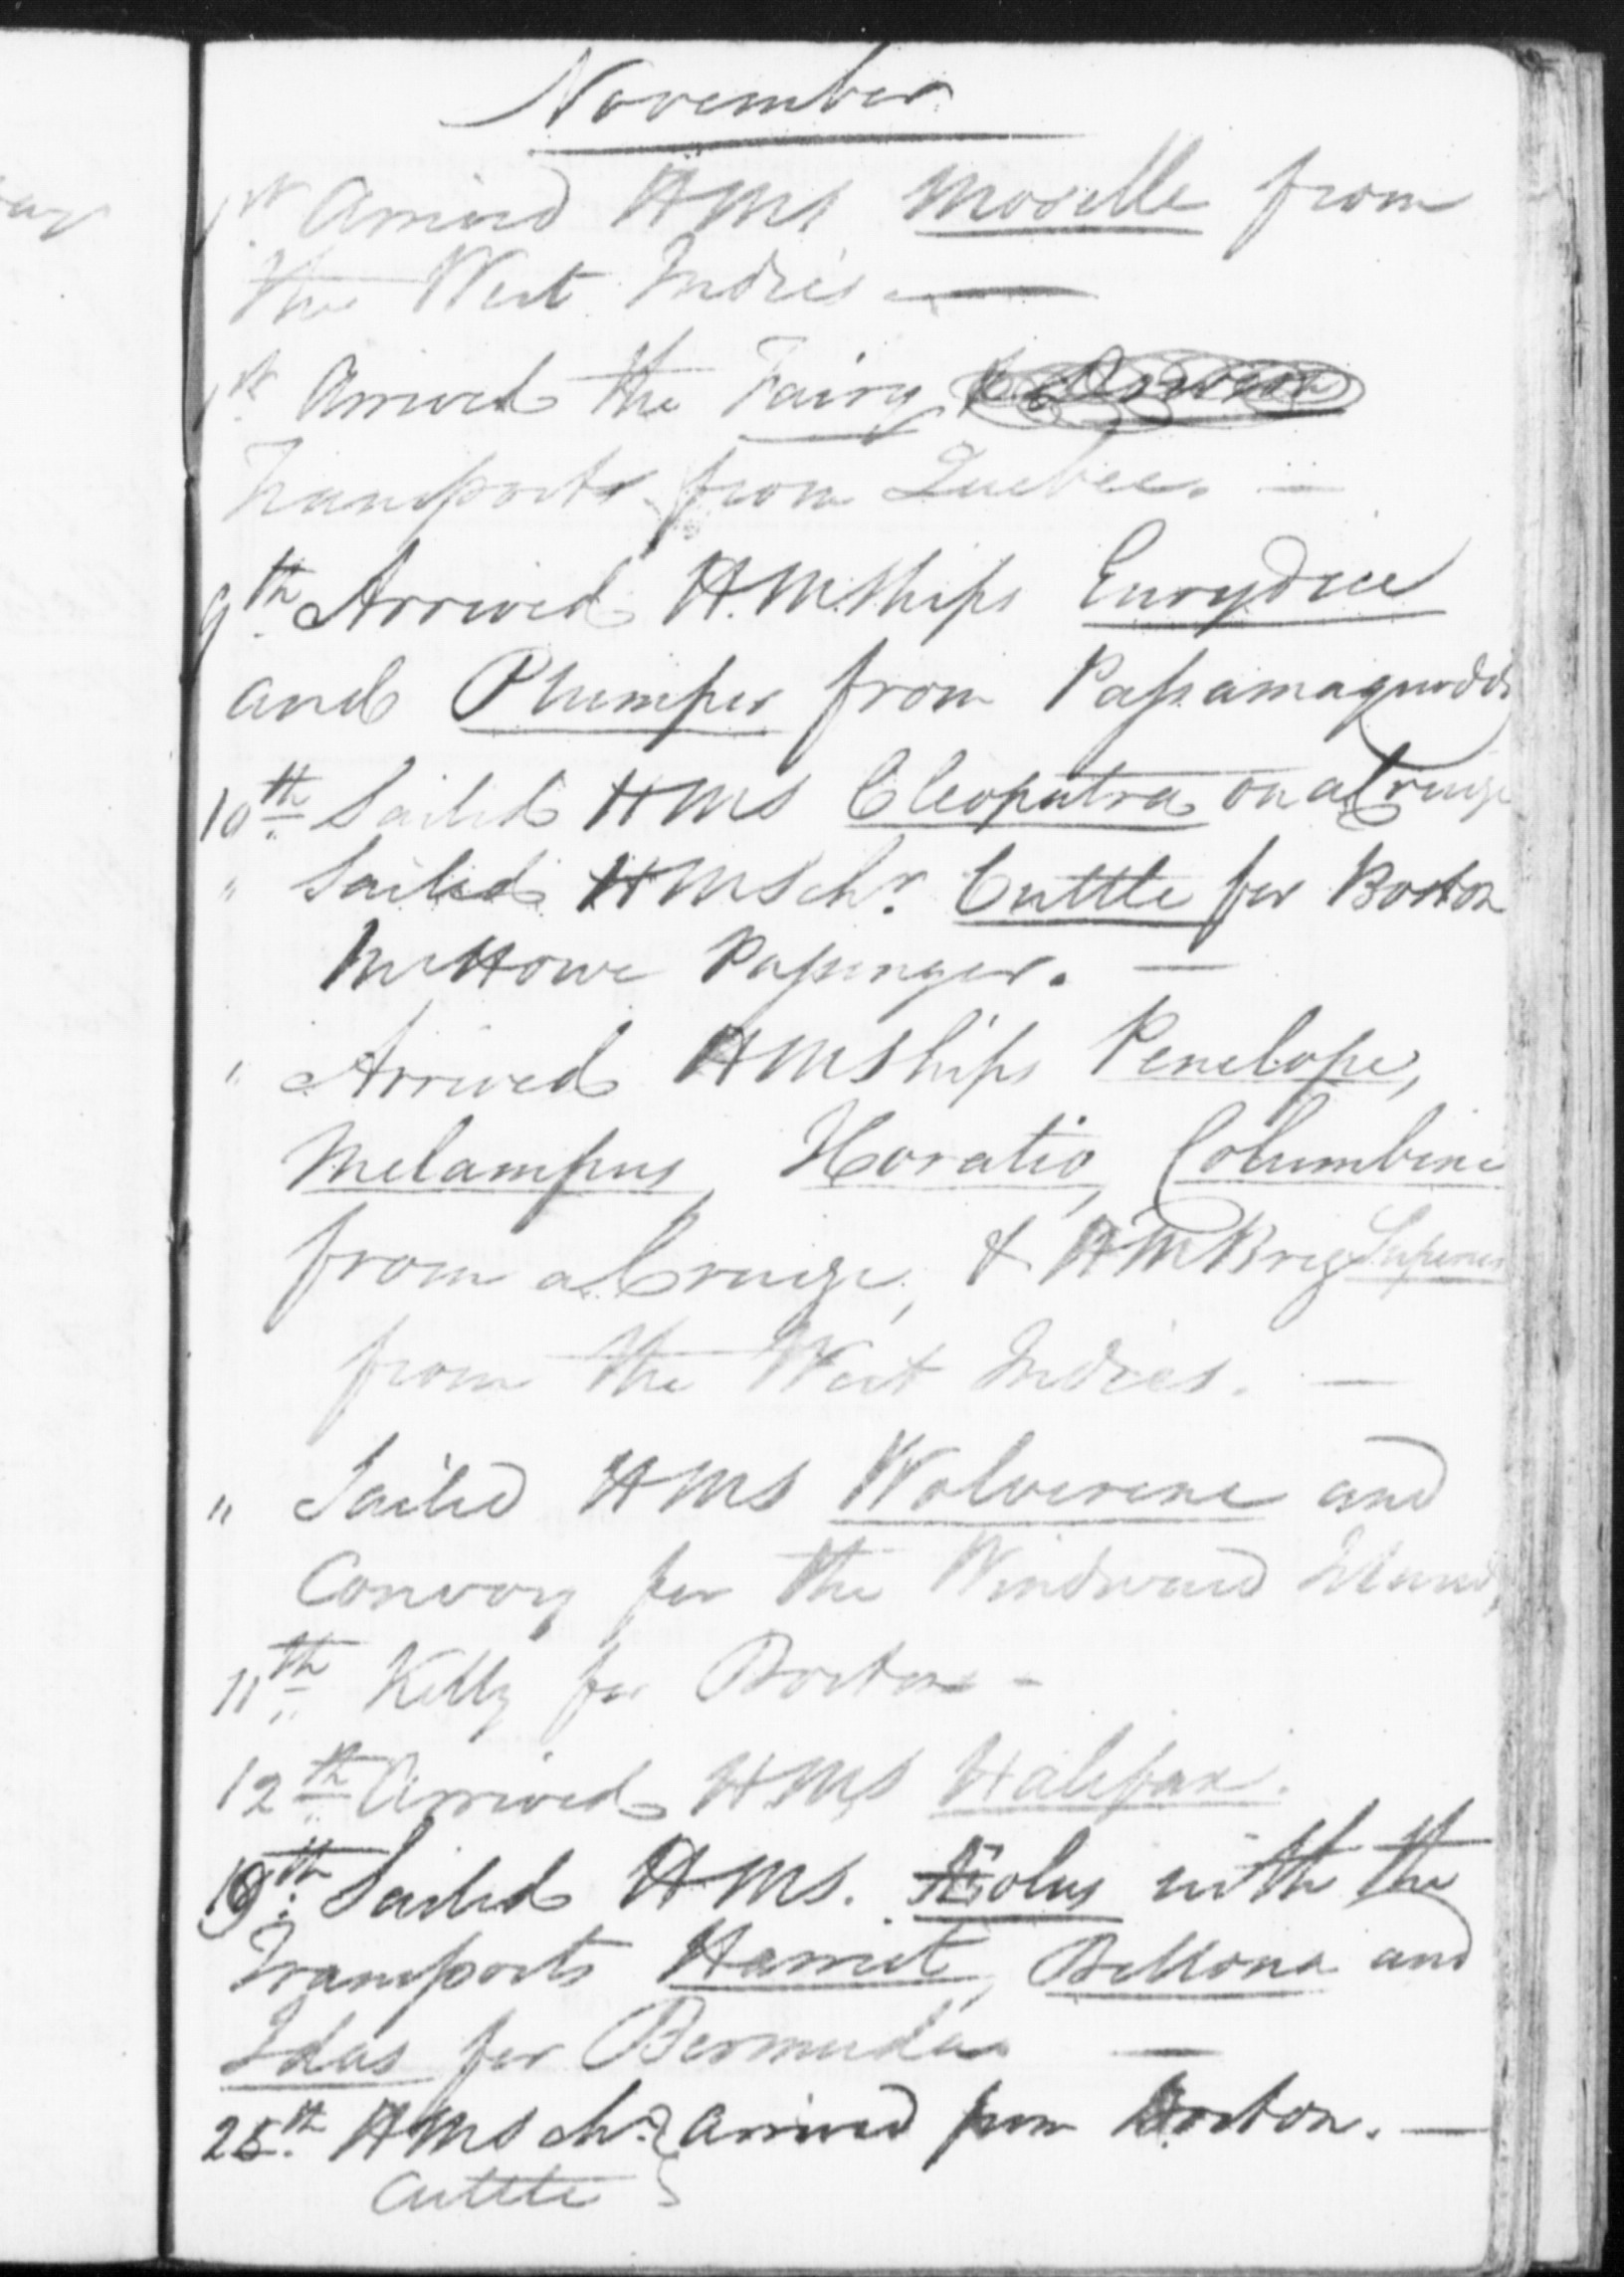 November
1st Arrived HMS Moselle from
the West Indies —
1st Arrived the Fairy
Transports from Quebec. —
9th Arrived H.M.Ships Eurydice
and Plumper from Passamaquoddy
10th Sailed HMS Cleopatra on a Cruize
" Sailed HMSchr. Cuttle for Boston
Mr Howe Passenger. —
" Arrived HMShips Penelope,
Melampus, Horatio, Columbine
from a Cruize, & HMBrig Superieur
from the West Indies. —
" Sailed HMS Wolverene and
Convoy for the Windward Islands,
11th Kelly for Boston -
12th Arrived HMS Halifax.
19th Sailed HMS. Æolus with the
Transports Harriet, Bellona and
Idas for Bermudas —
25th HMSchr. } arrived from Boston. —
Cuttle }